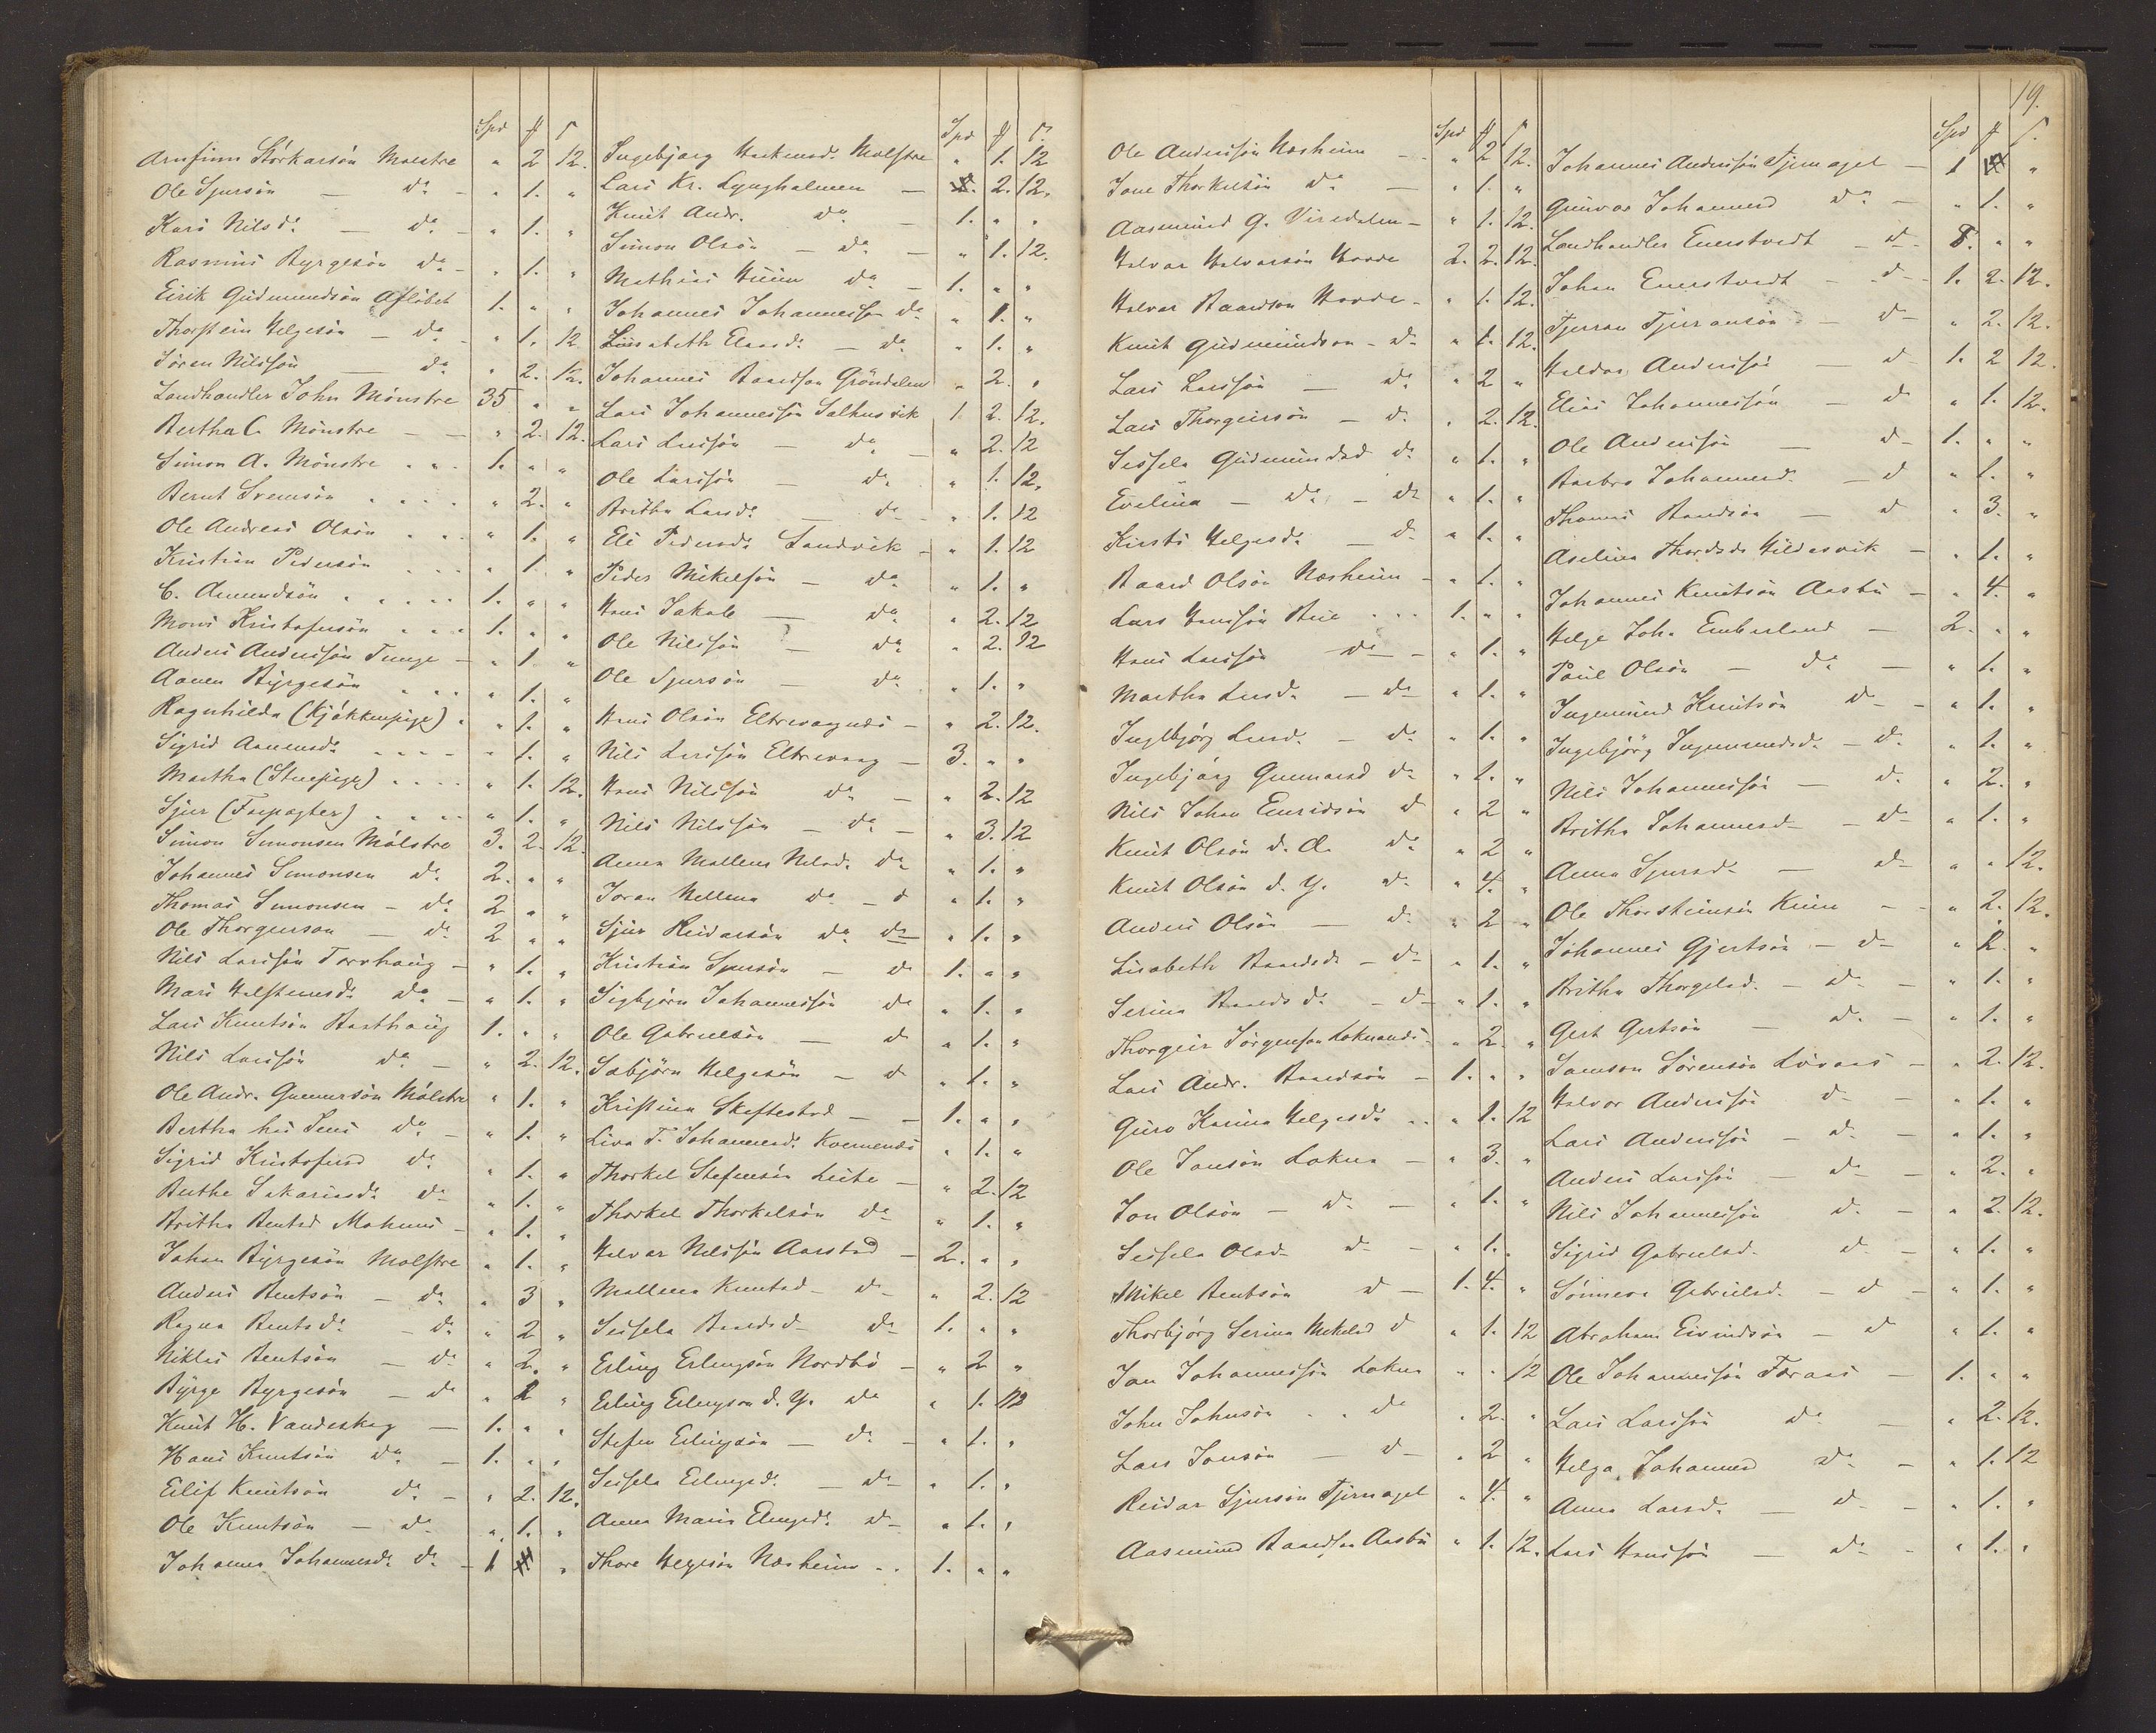 19.
Spd ß
Arnfinn Störkarsön Molstre " 2 12.
Ole Sjursön — do - " 1. "
Kari Nilsd. — do. - " 1. "
Rasmus Byrgesön do - " 1. "
Eirik Gudmundsön 1. " "
Thorstein Helgesön — do - " 1. 12
Sören Nilssön — do " 2. 12.
Landhandler John Mönstre 35 " "
Bertha C. Mönstre — — " 2. 12.
Simon A. Mönstre . . . 1. " "
Bernt Svensön . . . . " 2. "
Ole Andreas Olsön . . . " 1. "
Kristian Pedersön . . . . " 1 "
C. Amundsön . . . . . 1. " "
Mons Kristofersön . . . 1. " "
Anders Anderssön Tunge — " 1 "
Aanen Byrgesön . . . . " 1. "
Ragnhilda (Kjökkenpige) . " 1. "
Sigrid Aanensd. . . . . - 1. "
Martha (Stuepige) . . . . " 1. 12.
Sjur (Forpagter) . . . . " 1. "
Simon Simonsen Molstre 3. 2. 12.
Johannes Simonsen do. 2. " "
Thomas Simonsen - do. 2 " "
Ole Thorgerson — do. 2 " "
Nils Larssön Torvhaug — " 1. "
Mari do — " 1. "
Lars Knutsön Barthaug 1. " "
Nils Larssön do. — " 2. 12.
Ole Andr. Gunnarsön Mölstre " 1. "
Bertha hos Jens do. — " 1. "
Sigrid Kristofersd do. " 1. "
Berthe Sakariasd. do " 1. "
Britha Bentsd — " 1. "
Johan Byrgesön Molstre " 1. "
Anders Bentsön — do " 3 "
Ragna Bentsd. — do. " 2 "
Niklas Bentsön — do. " 2. "
Byrge Byrgesön — do " 2 "
Knut H. Vandaskog — 1. " "
Hans Knutsön do. — 1. " "
Eilif Knutsön do. — " 2. 12.
Ole Knutsön — do. " 1. "
Johanna Johannesd. do. — 1 "
Spd ß
Ingebjørg Molstre " 1. 12
Lars Kr. Lyngholmen — 2. 12.
Knut Andr. do — 1. " "
Simon Olsön — do — " 1. 12.
Mathias do — 1. " "
Johannes Johannessön do " 1. "
Lisabeth — do. " 1. "
Johannes Baardson Gröndalen " 2. "
Lars Johannessön Salhusvik 1. 2. 12.
Lars Larssön — do — " 2. 12
Ole Larssön — do. " 1. 12.
Britha Larsd. — do — " 1. 12
Eli Pedersd. Sandvik — " 1. 12
Peder Mikelsön — do. " 1. "
Hans Jakob — do. " 2. 12
Ole Nilssön — do. " 2. 12
Ole Sjursön — do. " 1. "
Hans Olsön Eltrevaagnes — " 2. 12.
Nils Larssön Eltrevaag — 3. " "
Hans Nilssön do. — " 2. 12
Nils Nilssön — do — " 3. 12
Anna Mallena Nilsd. do " 1. "
Joran Hellena do — d " 1. "
Sjur Reidarsön do do " 1. "
Kristian Sjursön — do 1. " "
Sigbjörn Johannessön do " 1. "
Ole Gabrielsön — do " 1. "
Sæbjörn Helgesön — do " 1. "
Kristina Skeftestad — — 1. " "
Liva T. Johannesd. Kvernenes " 1. "
Thorkel Stefensön Leite — " 2. 12
Thorkel Thorkelsön do " 1. "
Halvor Nilssön Aarstad — 2. " "
Mallena Knutsd — do — " 2. 12
Seisela Baardsd — do — 1. " "
Erling Erlingsön Nordbö — " 2 "
Erling Erlingson d. Y. do " 1. 12
Stefen Erlingsön — do. — " 1. "
Seisela Erlingsd. — do — " 1. "
Anna Maria Elingsd. do — " 1. "
Thore Helgesön Næsheim . . 1. " "
Spd ß
Ole Anderssön Næsheim — - " 2 12.
Jone Thorkelsön do — " 1. "
Aasmund G. Viredalen — " 1. 12.
Halvor Halvorsön Hovde 2. 2. 12.
Halvor Baardson Hovde — " 1. 12.
Knut Gudmundson — do " 1. 12.
Lars Larssön — do. " 2 "
Lars Thorgeirsön — do. " 2. 12.
Seisela Gudmundsd do. " 1. "
Evelina — do — do " 1. "
Kirsti Helgesd. — do. " 1. "
Baard Olsön Næsheim — " 1. "
Lars Hanssön Bue . . . 1. " "
Hans Larssön do — " 1. "
Martha Larsd. — do " 1. "
Ingebjörg Larsd. — do. " 1. "
Ingebjörg Gunnarsd do " 1. "
Nils Johan Enridsön do " 2 "
Knut Olsön d. Æ. do " 2 "
Knut Olsön d. Y. do. " 4. "
Anders Olsön — do. " 2 "
Lisabeth Baardsd — do " 1. "
Serina Baardsd. — do " 1. "
Thorgeir Jörgenson Loknanes " 2. "
Lars Andr. Baardsön — 1. " "
Guro Karina Helgesd. . . " 1. 12
Ole Jonsön Lokna — " 3. "
Jon Olsön — do. — " 1. "
Seisela Olsd — do — " 1. "
Mikel Bentsön do — 1. 4. "
Thorbjörg Serina Mekelsd d " 1. 12
Jon Johannessön Lokna " " 12
John Johnsön . . do " 2. "
Lars Jonsön — do — " 2 "
Reidar Sjursön Tjernagel " 4. "
Aasmund Baardson Aasbu " 1. 12.
Spd ß
Johannes Anderssön Tjernagel — 1 "
Gunvor Johannesd do. — " 1. "
Landhandler Enerstvedt — do — 8. " "
Johan Enerstvedt — do — 1. 2. 12.
Tjerran Tjerransön — do — " 2. 12.
Haldor Anderssön — do 1. 2 12.
Elias Johannessön — do " 1. 12.
Ole Anderssön — do — 1. " "
Barbro Johannesd. — do " 1. "
Thomas Baardsön — do " 3. "
Aselina Thordsd. Hildesvik — " 1. "
Johannes Knutsön Aasbu — " 4. "
Helge Joh. Emberland — 2. " "
Paul Olsön — do — " 1. "
Ingemund Knutsön do — " 1. "
Ingebjörg Ingemundsd. — do. " 1. "
Nils Johannessön — do. " 2. "
Britha Johannesd — do — " 1. "
Anna Sjursd. — do — " " 12.
Ole Thorsteinsön — — " 2. 12.
Johannes Gjertsön — do — " 2. "
Britha Thorgelsd. — do — " 1. "
Gert Gertsön — do. — " 1. "
Samson Sörensön Lövaas — " 2. 12.
Halvor Anderssön do — " 1. "
Lars Anderssön — do. — " 1. "
Anders Larssön — do — " 2. "
Nils Johannessön do. — " 2. 12.
Sigrid Gabrielsd. — do — " 1. "
Sönneva Gabrielsd. — do — " 1. "
Abraham Eivindsön — do " 1. "
Ole Johannessön Foraas — 1. " "
Lars Larssön do. — " 2. 12.
Helga Johannesd do. — " 1. 12
Anna Larsd. — do — " 1. "
Lars Hanssön — do — " 1. "